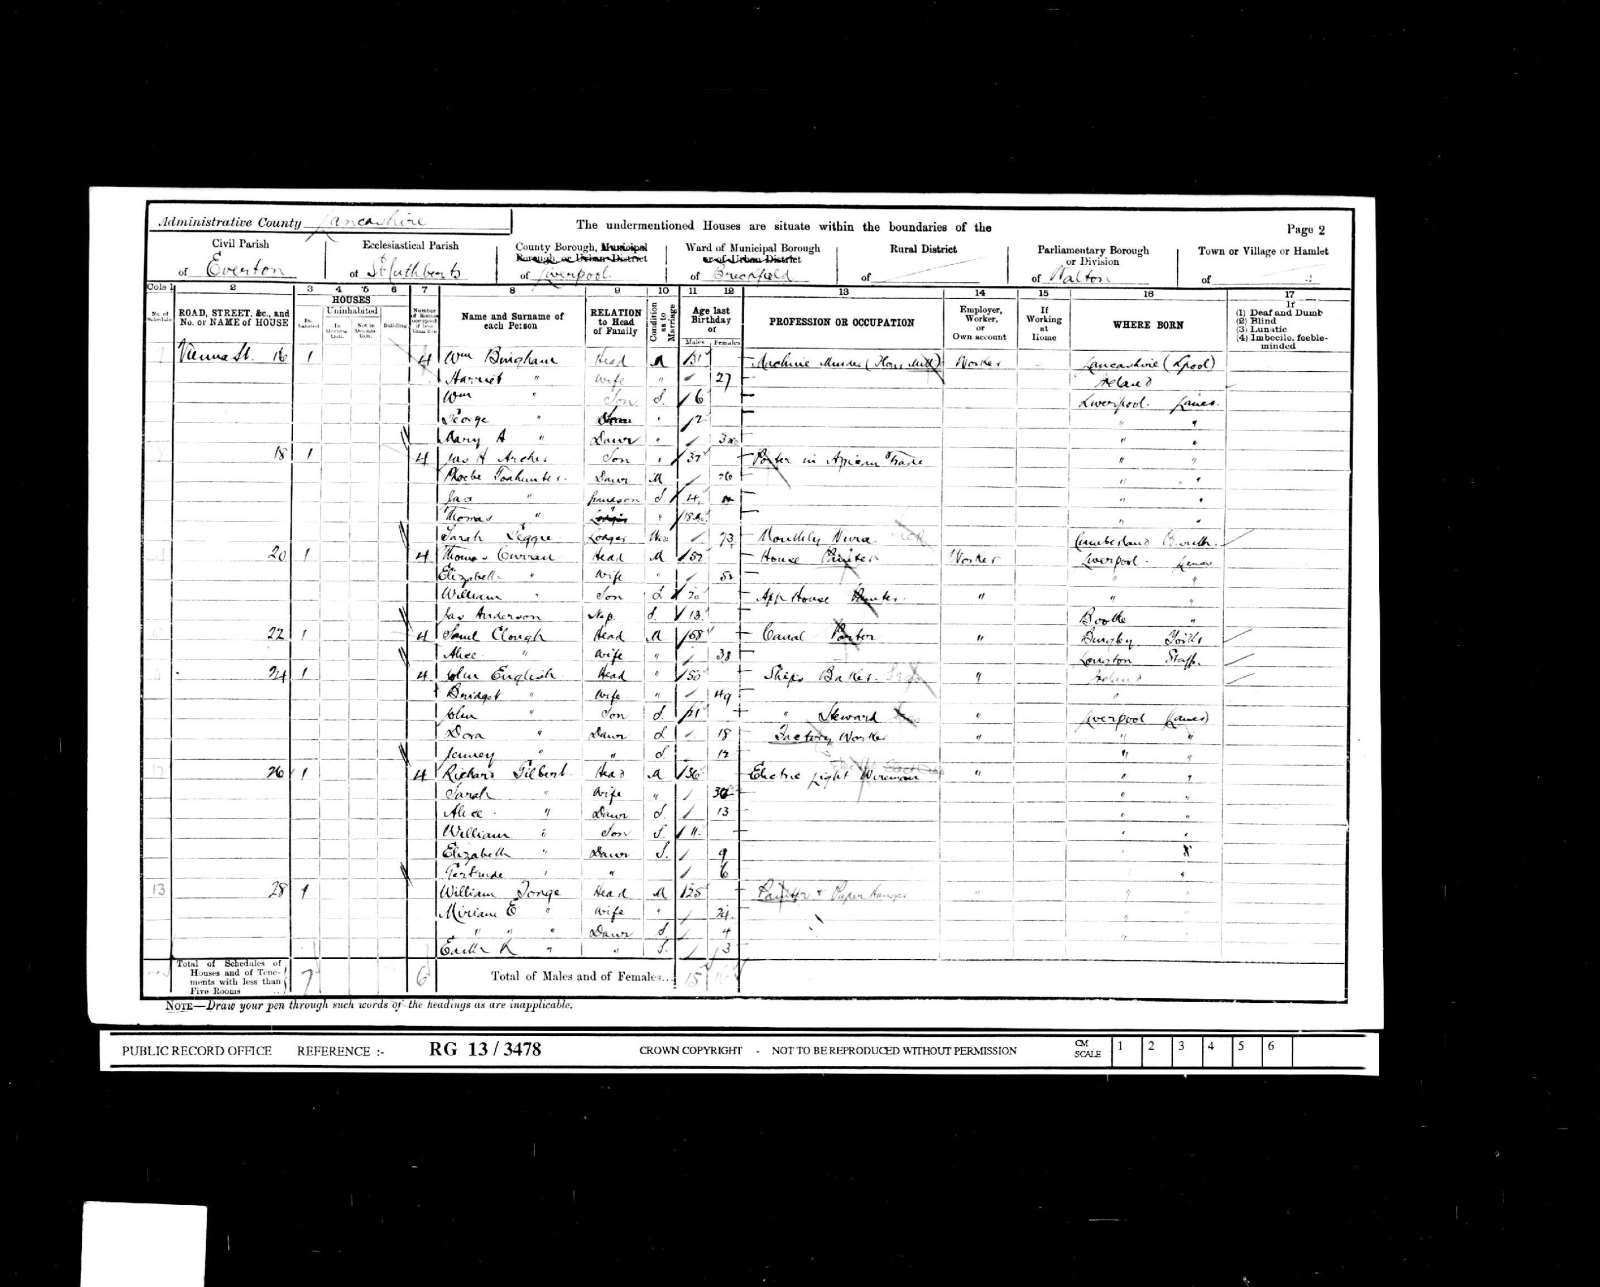 Administrative County Lancashire
The undermentioned Houses are situate within the boundaries of the
Page 2
Civil Parish of Everton
Ecclesiastical Parish of St Cuthberts
County Borough, Municipal Borough, or Urban District of Liverpool
Ward of Municipal Borough or of Urban District of Breckfield
Rural District of
Parliamentary Borough or Division of Walton
Town or Village or Hamlet of
Cols 1 2 3 4 5 6 7 8 9 10 11 12 13 14 15 16 17
No. of Schedule
ROAD, STREET, &c., and No. or NAME of HOUSE
HOUSES
Inhabited
Uninhabited
In Occupation.
Not in Occupation.
Building
Name and Surname of each Person
RELATION to Head of Family
Condition as to Marriage
Age last Birthday of
Males Females
PROFESSION OR OCCUPATION
Employer, Worker, or Own account
If Working at Home
WHERE BORN
If
(1) Deaf and Dumb
(2) Blind
(3) Lunatic
(4) Imbecile, feeble-minded
Vienna St. 16 1 4 Wm Bingham Head M Machine Minder Worker Lancashire (Lpool)
Harriet " Wife " 27 Ireland
Wm " Son S. 6 Liverpool Lancs.
George " 2 " "
Mary A " Daur " " "
18 1 4 Jas H Archer Son " 37 Porter in Trade " "
Phoebe Daur M 26 " "
Jas " Grandson S 4 " "
Thomas " " " "
Sarah Lodger Wid 73 Monthly Cumberland
20 1 4 Thomas Curran Head M House Painter Worker Liverpool Lancs
Elizabeth " Wife " " "
William " Son S 20 App House Painter " " "
Jas Anderson Nep. S. 13 Bootle "
22 1 4 Saml Clough Head M 68 Canal Porter " Bingley Yorks
Alice " Wife " 38 Staff.
24 1 4 John English Head " 50 Ships Baker " Ireland
Bridget " Wife " 49 "
John " Son S. 21 " Steward " Liverpool Lancs
Dora " Daur S 18 Factory Worker " " "
" " S 12 " "
26 1 4 Richard Gilbert Head M 36 Electric Light Wireman " " "
Sarah " Wife " " "
Alice " Daur S. 13 " "
William " Son S. 11 " "
Elizabeth " Daur S. 9 "
Gertrude " " 6 "
13 28 1 William Tonge Head M Painter & Paper Hanger " " "
Miriam E " Wife " 24 " "
" " " Daur S. 4 "
" " S. 3
Total of Schedules of Houses and of Tenements with less than Five Rooms 7 6
Total of Males and of Females... 15
NOTE—Draw your pen through such words of the headings as are inapplicable.
PUBLIC RECORD OFFICE REFERENCE :- RG 13 / 3478 CROWN COPYRIGHT - NOT TO BE REPRODUCED WITHOUT PERMISSION CM SCALE 1 2 3 4 5 6